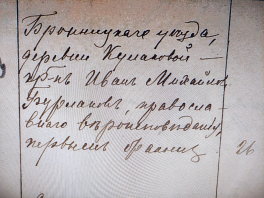 Бронницкаго уѣзда,
деревни Кулаковой —
кр-нъ Иванъ Михайлов
Бурлаковъ, правосла-
внаго вѣроисповѣданія,
первымъ бракомъ
26